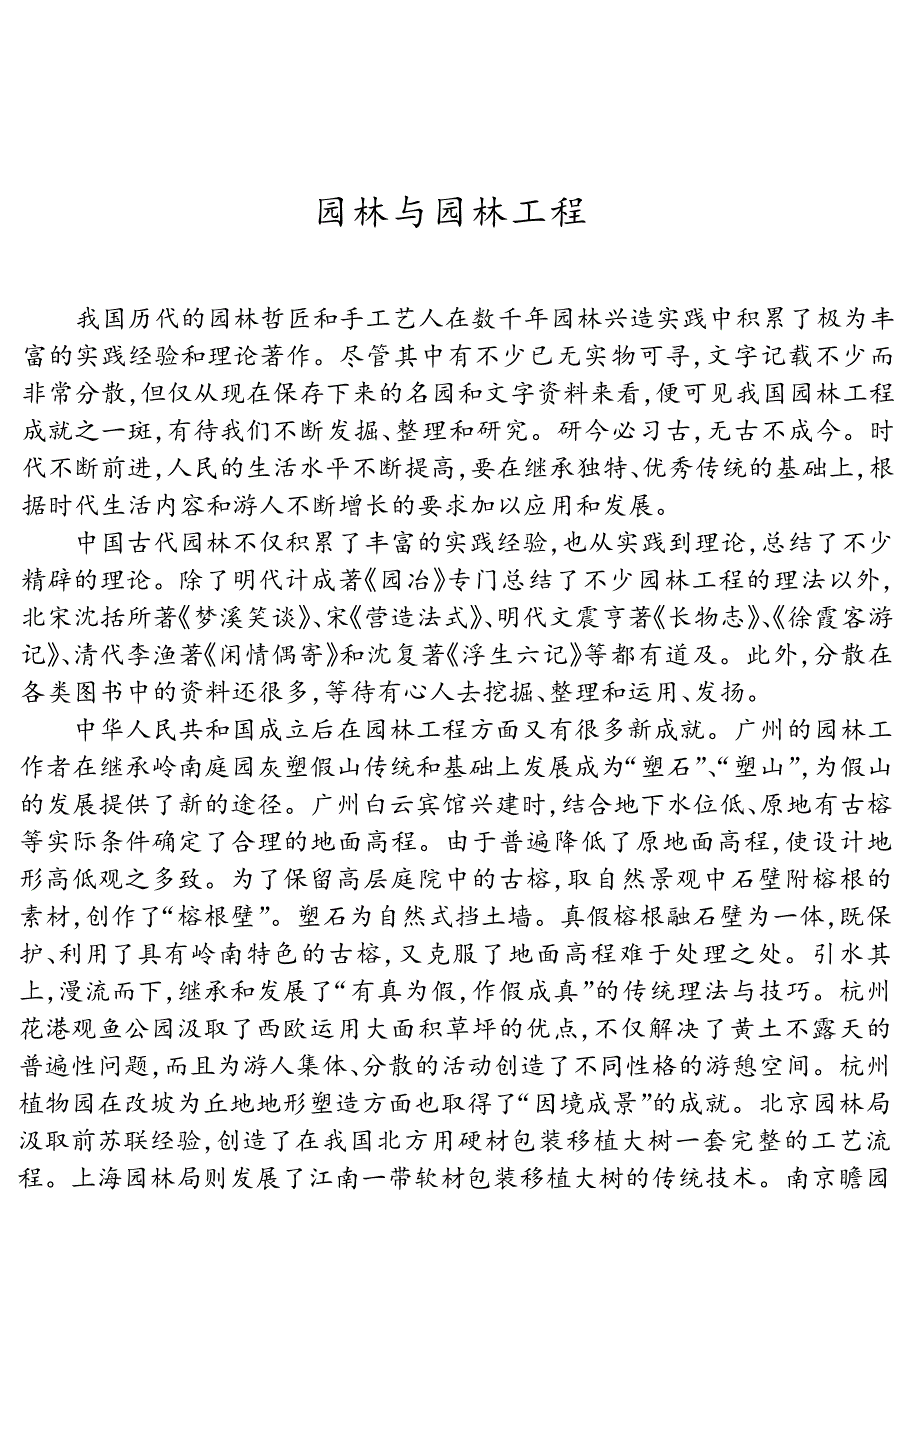 园林与园林工程
我国历代的园林哲匠和手工艺人在数千年园林兴造实践中积累了极为丰
富的实践经验和理论著作。尽管其中有不少已无实物可寻,文字记载不少而
非常分散,但仅从现在保存下来的名园和文字资料来看,便可见我国园林工程
成就之一斑,有待我们不断发掘、整理和研究。研今必习古,无古不成今。时
代不断前进,人民的生活水平不断提高,要在继承独特、优秀传统的基础上,根
据时代生活内容和游人不断增长的要求加以应用和发展。
中国古代园林不仅积累了丰富的实践经验,也从实践到理论,总结了不少
精辟的理论。除了明代计成著《园冶》专门总结了不少园林工程的理法以外,
北宋沈括所著《梦溪笑谈》、宋《营造法式》、明代文震亨著《长物志》、《徐霞客游
记》、清代李渔著《闲情偶寄》和沈复著《浮生六记》等都有道及。此外,分散在
各类图书中的资料还很多,等待有心人去挖掘、整理和运用、发扬。
中华人民共和国成立后在园林工程方面又有很多新成就。广州的园林工
作者在继承岭南庭园灰塑假山传统和基础上发展成为“塑石”、“塑山”,为假山
的发展提供了新的途径。广州白云宾馆兴建时,结合地下水位低、原地有古榕
等实际条件确定了合理的地面高程。由于普遍降低了原地面高程,使设计地
形高低观之多致。为了保留高层庭院中的古榕,取自然景观中石壁附榕根的
素材,创作了“榕根壁”。塑石为自然式挡土墙。真假榕根融石壁为一体,既保
护、利用了具有岭南特色的古榕,又克服了地面高程难于处理之处。引水其
上,漫流而下,继承和发展了“有真为假,作假成真”的传统理法与技巧。杭州
花港观鱼公园汲取了西欧运用大面积草坪的优点,不仅解决了黄土不露天的
普遍性问题,而且为游人集体、分散的活动创造了不同性格的游憩空间。杭州
植物园在改坡为丘地地形塑造方面也取得了“因境成景”的成就。北京园林局
汲取前苏联经验,创造了在我国北方用硬材包装移植大树一套完整的工艺流
程。上海园林局则发展了江南一带软材包装移植大树的传统技术。南京瞻园